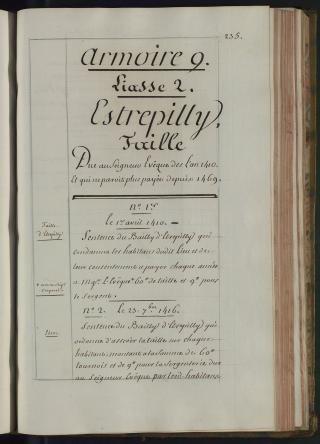 235.
Armoire 9.
Liasse 2.
Estrepilly,
Taille
Due au Seigneur Evêque des l'an 1410.
Et qui ne paroit plus payée depuis 1469.
n.° 1.er
le 1.er avril 1410. —
Taille
d'Etrépilly
Sentence du Bailly d'Etrepilly qui
condamne les habitans dudit Lieu et de
leur consentement a payer chaque année
a Mgr. L'Evêque 60# de taille et 9# pour
le Sergent.
n.° 2. Le 23. 7.bre 1416.
Idem
Sentence du Bailly d'Etrepilly qui
ordonne d'asseoir la taille sur chaque
habitant, montant a la somme de 60#
tournois et de 9# pour la Sergenterie due
au Seigneur Evêque par lesd. habitans.